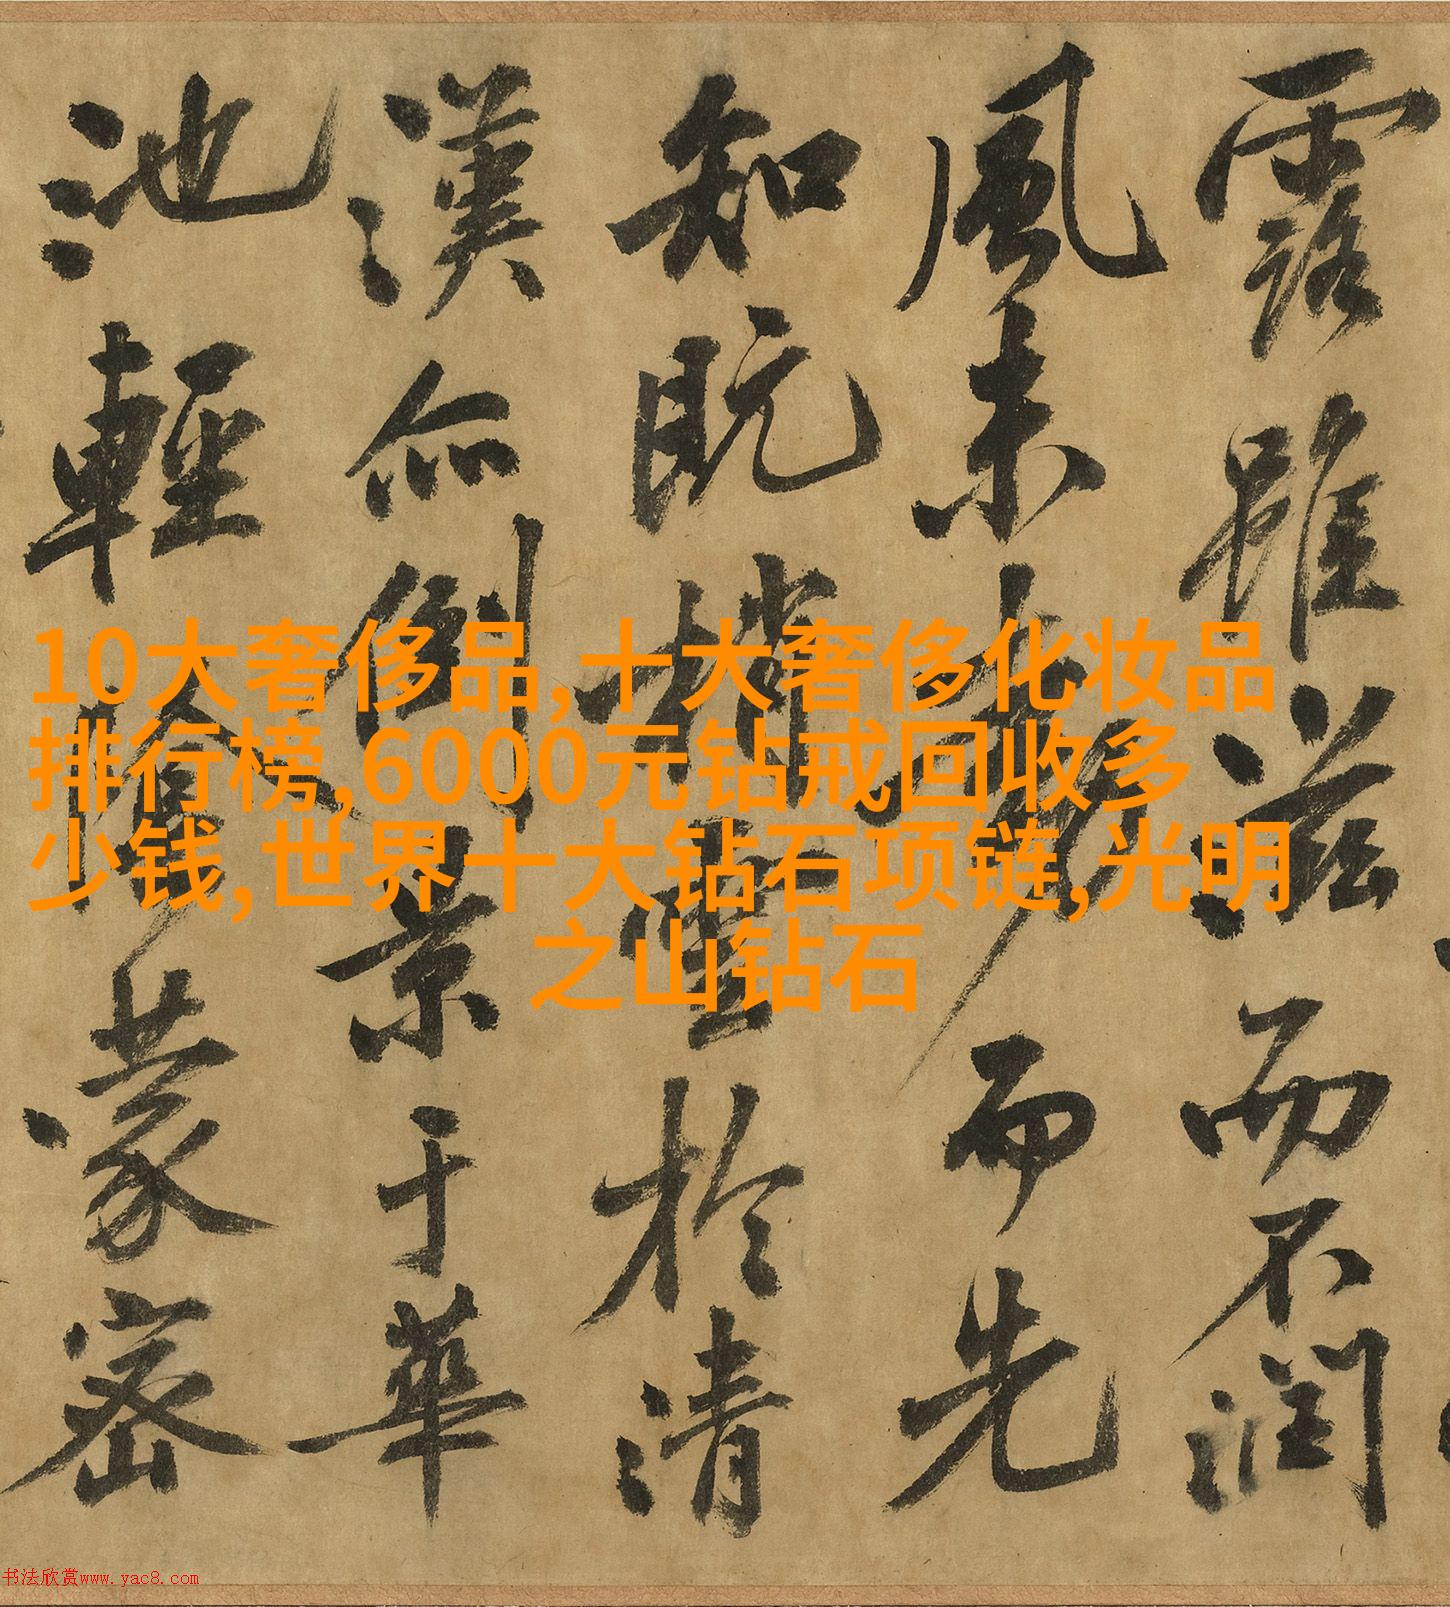 露雖滋而不潤
風未而先
知既梢雲於清
漢亦倒景于華
池輕陰蒙密
10大奢侈品,十大奢侈化妆品
排行榜,6000元钻戒回收多
少钱,世界十大钻石项链,光明
之山钻石
书法欣赏www.yac8.com